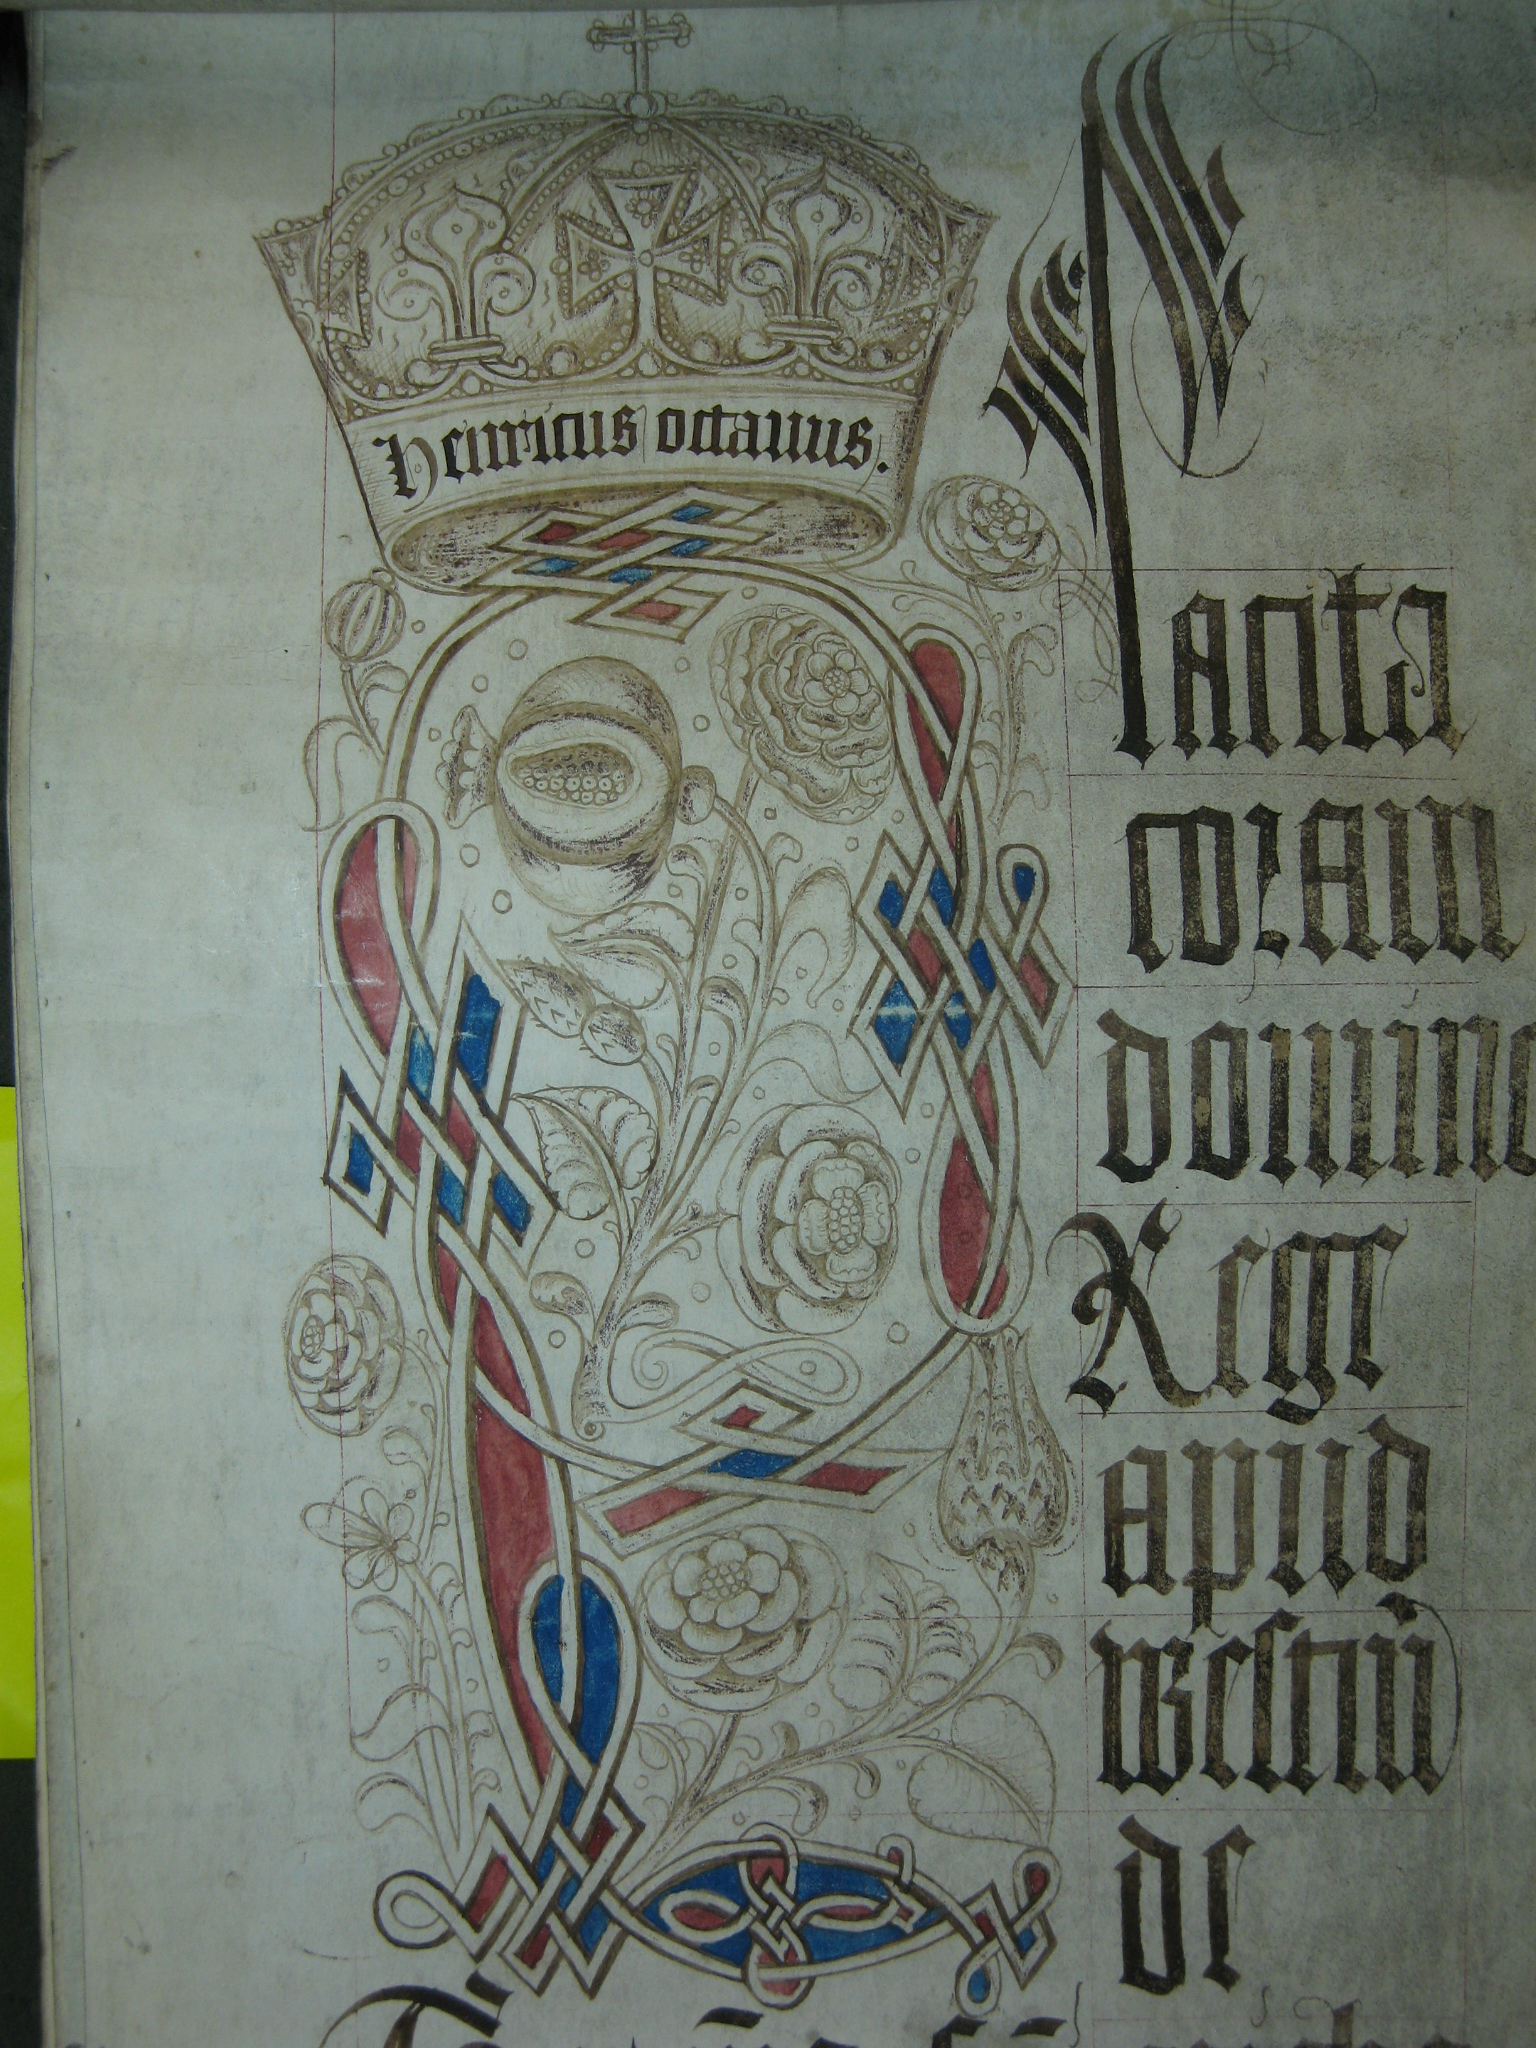 Henricus octauus.
Placita
coram
domino
Rege
apud
westm̄
de